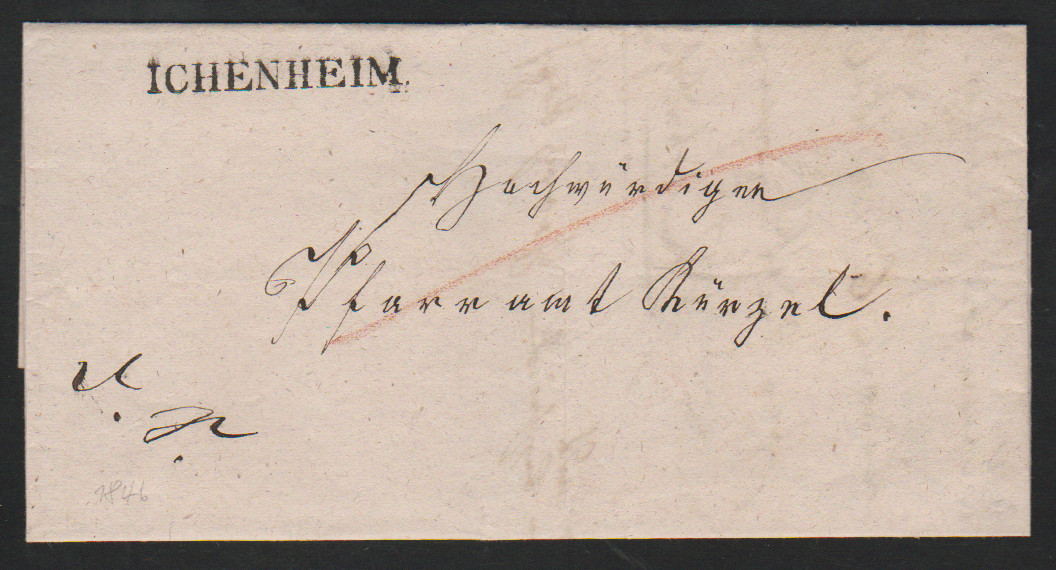 ICHENHEIM.
Hochwürdigen
Pfarramt Kürzel.
1846